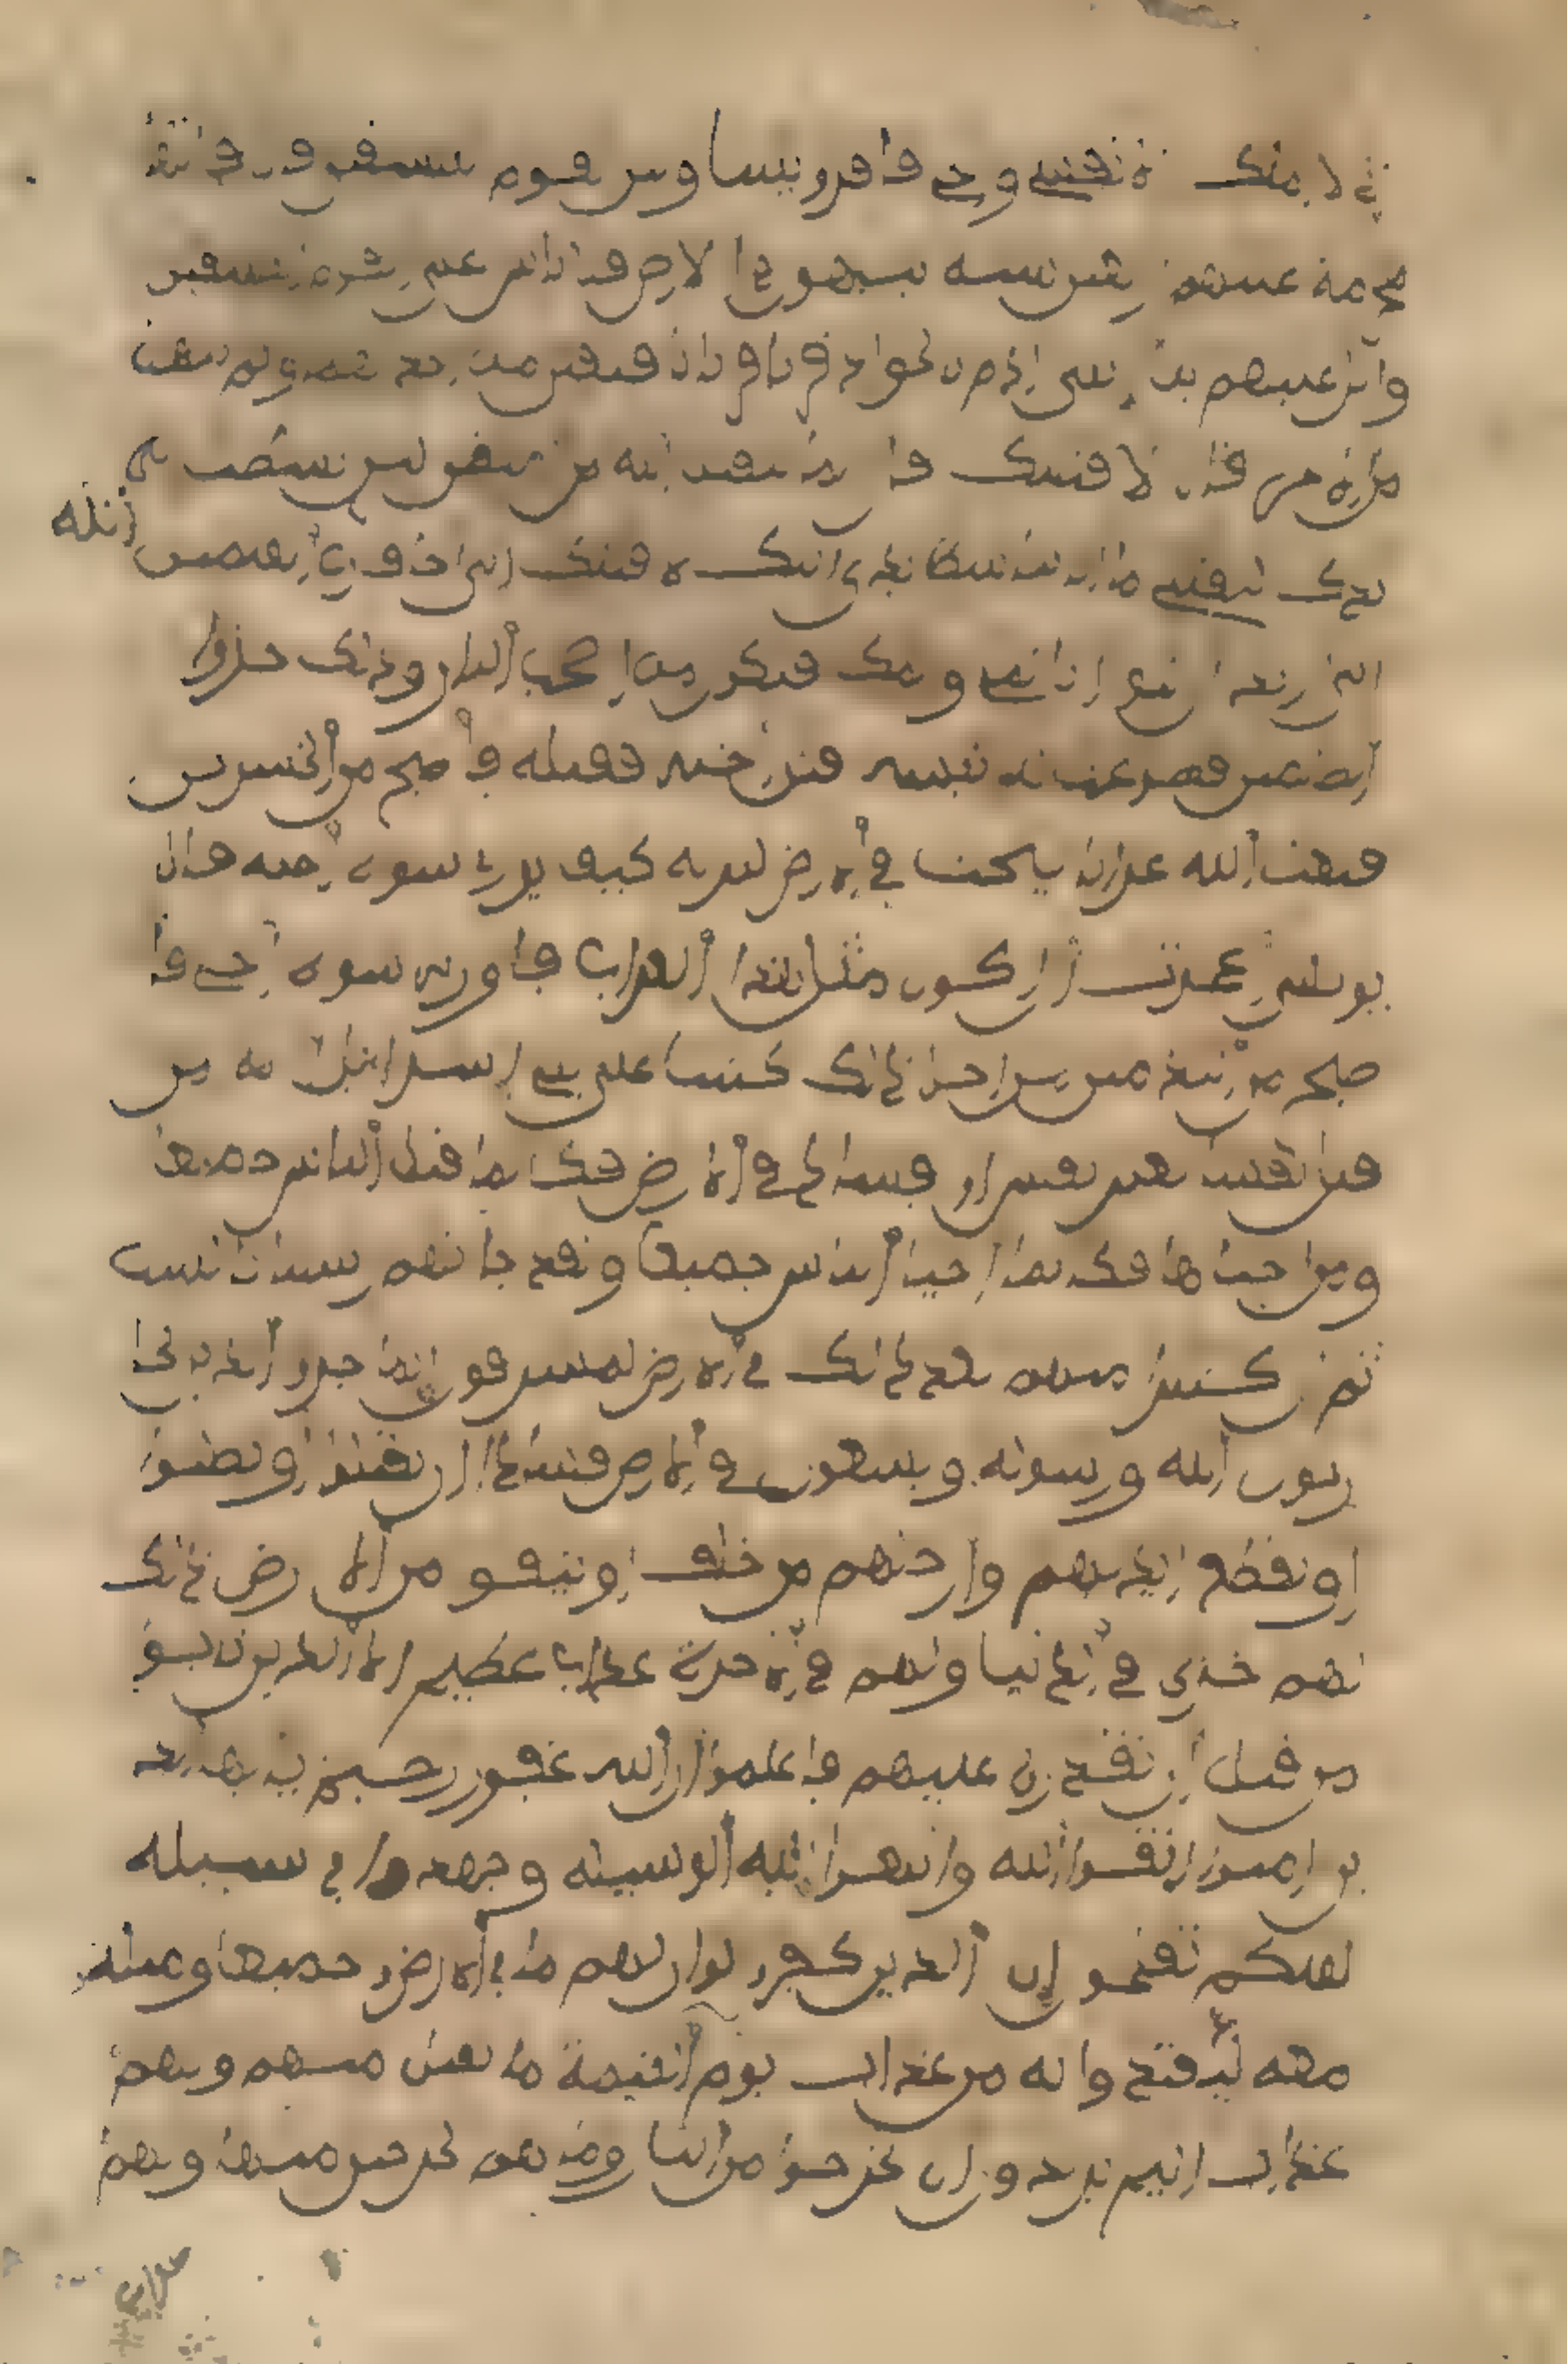 لا املك الا نفسي و اخي فافرو بيننا و بين القوم الفسقين قال فانها
محرمة عليهم اربعين سنة يتيهون في الارض فلا تاس على القوم الفسقين
واتل عليهم نبا ابني ادم بالحق اذ قربا قربانا فتقبل من احدهما ولم يتقبل
من الاخر قال لاقتلنك قال انما يتقبل الله من المتقين لين بسطت الي
يدك لتقتلني ما انا بباسط يدي اليك لاقتلك اني اخاف الله
اني اريد ان تبوا باثمي و اثمك فتكون من اصحب النار وذلك جزوا
الظلمين فطوعت له نفسه قتل اخيه فقتله فاصبح من الخسرين
فبعث الله غرابا يبحث في الارض ليريه كيف يوري سوة اخيه قال
يويلتى اعجزت ان اكون مثل هذا الغراب فاوري سوة اخي فا
صبح من الندمين من اجل ذلك كتبنا على بني اسرايل انه من
قتل نفسا بغير نفس او فساد في الارض فكانما قتل الناس جميعا
ومن احياها فكانما احيا الناس جميعا ولقد جاتهم رسلنا بالبينت
ثم ان كثيرا منهم بعد ذلك في الارض لمسرفون انما جزوا الذين يحا
ربون الله ورسوله ويسعون في الارض فسادا ان يقتلوا او يصلبوا
او تقطع ايديهم وارجلهم من خلف او ينفو من الارض ذلك
لهم خزي في الدنيا ولهم في الاخرة عذاب عظيم الا الذين تابو
من قبل ان تقدرون عليهم فاعلموا ان الله غفور رحيم يايها الذ
ين امنوا اتقوا الله وابتغوا اليه الوسيلة وجهدوا في سبيله
لعلكم تفلحو ان الذين كفرو لو ان لهم ما في الارض جميعا ومثله
معه ليفتدوا به من عذاب يوم القيمة ما تقبل منهم ولهم
عذاب اليم يريدون ان يخرجوا من النار وما هم بخرجين منها ولهم